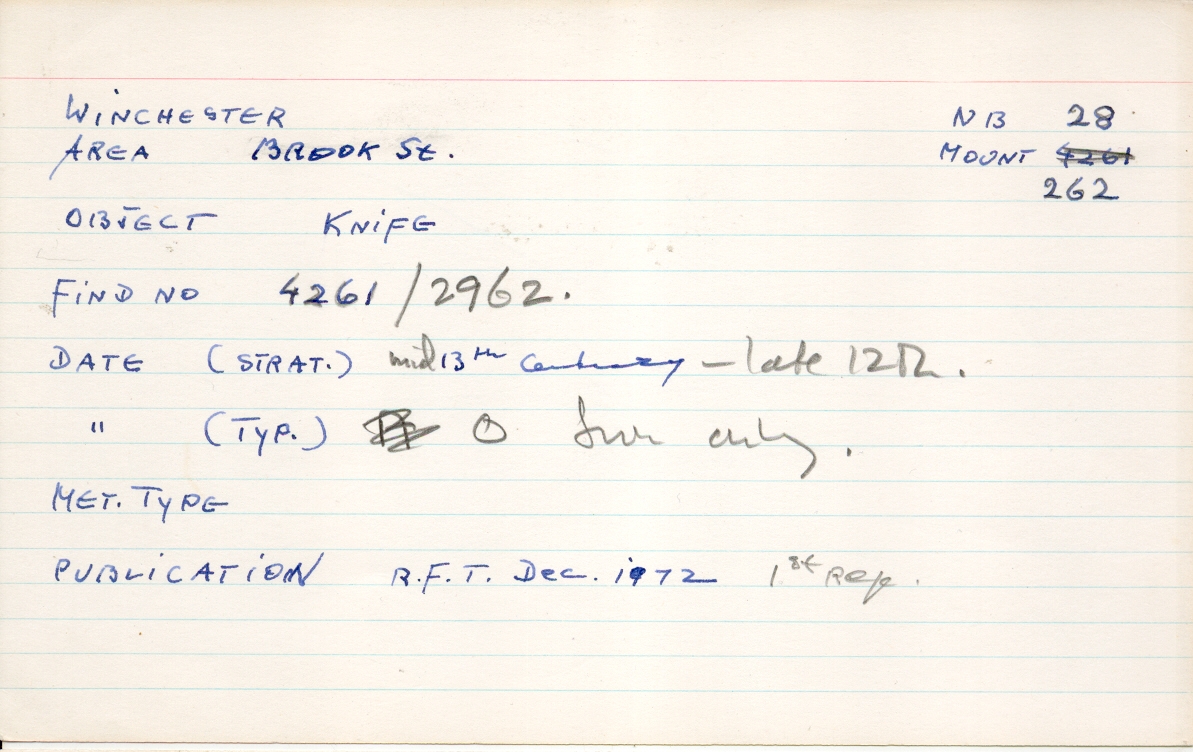 WINCHESTER NB 28
AREA BROOK St. MOUNT 4261
262
OBJECT KNIFE
FIND NO 4261/2962.
DATE (STRAT.) mid 13th Century – late 12th.
" (TYP.) O only.
MET. TYPE
PUBLICATION R.F.T. Dec. 1972 1st Rep.